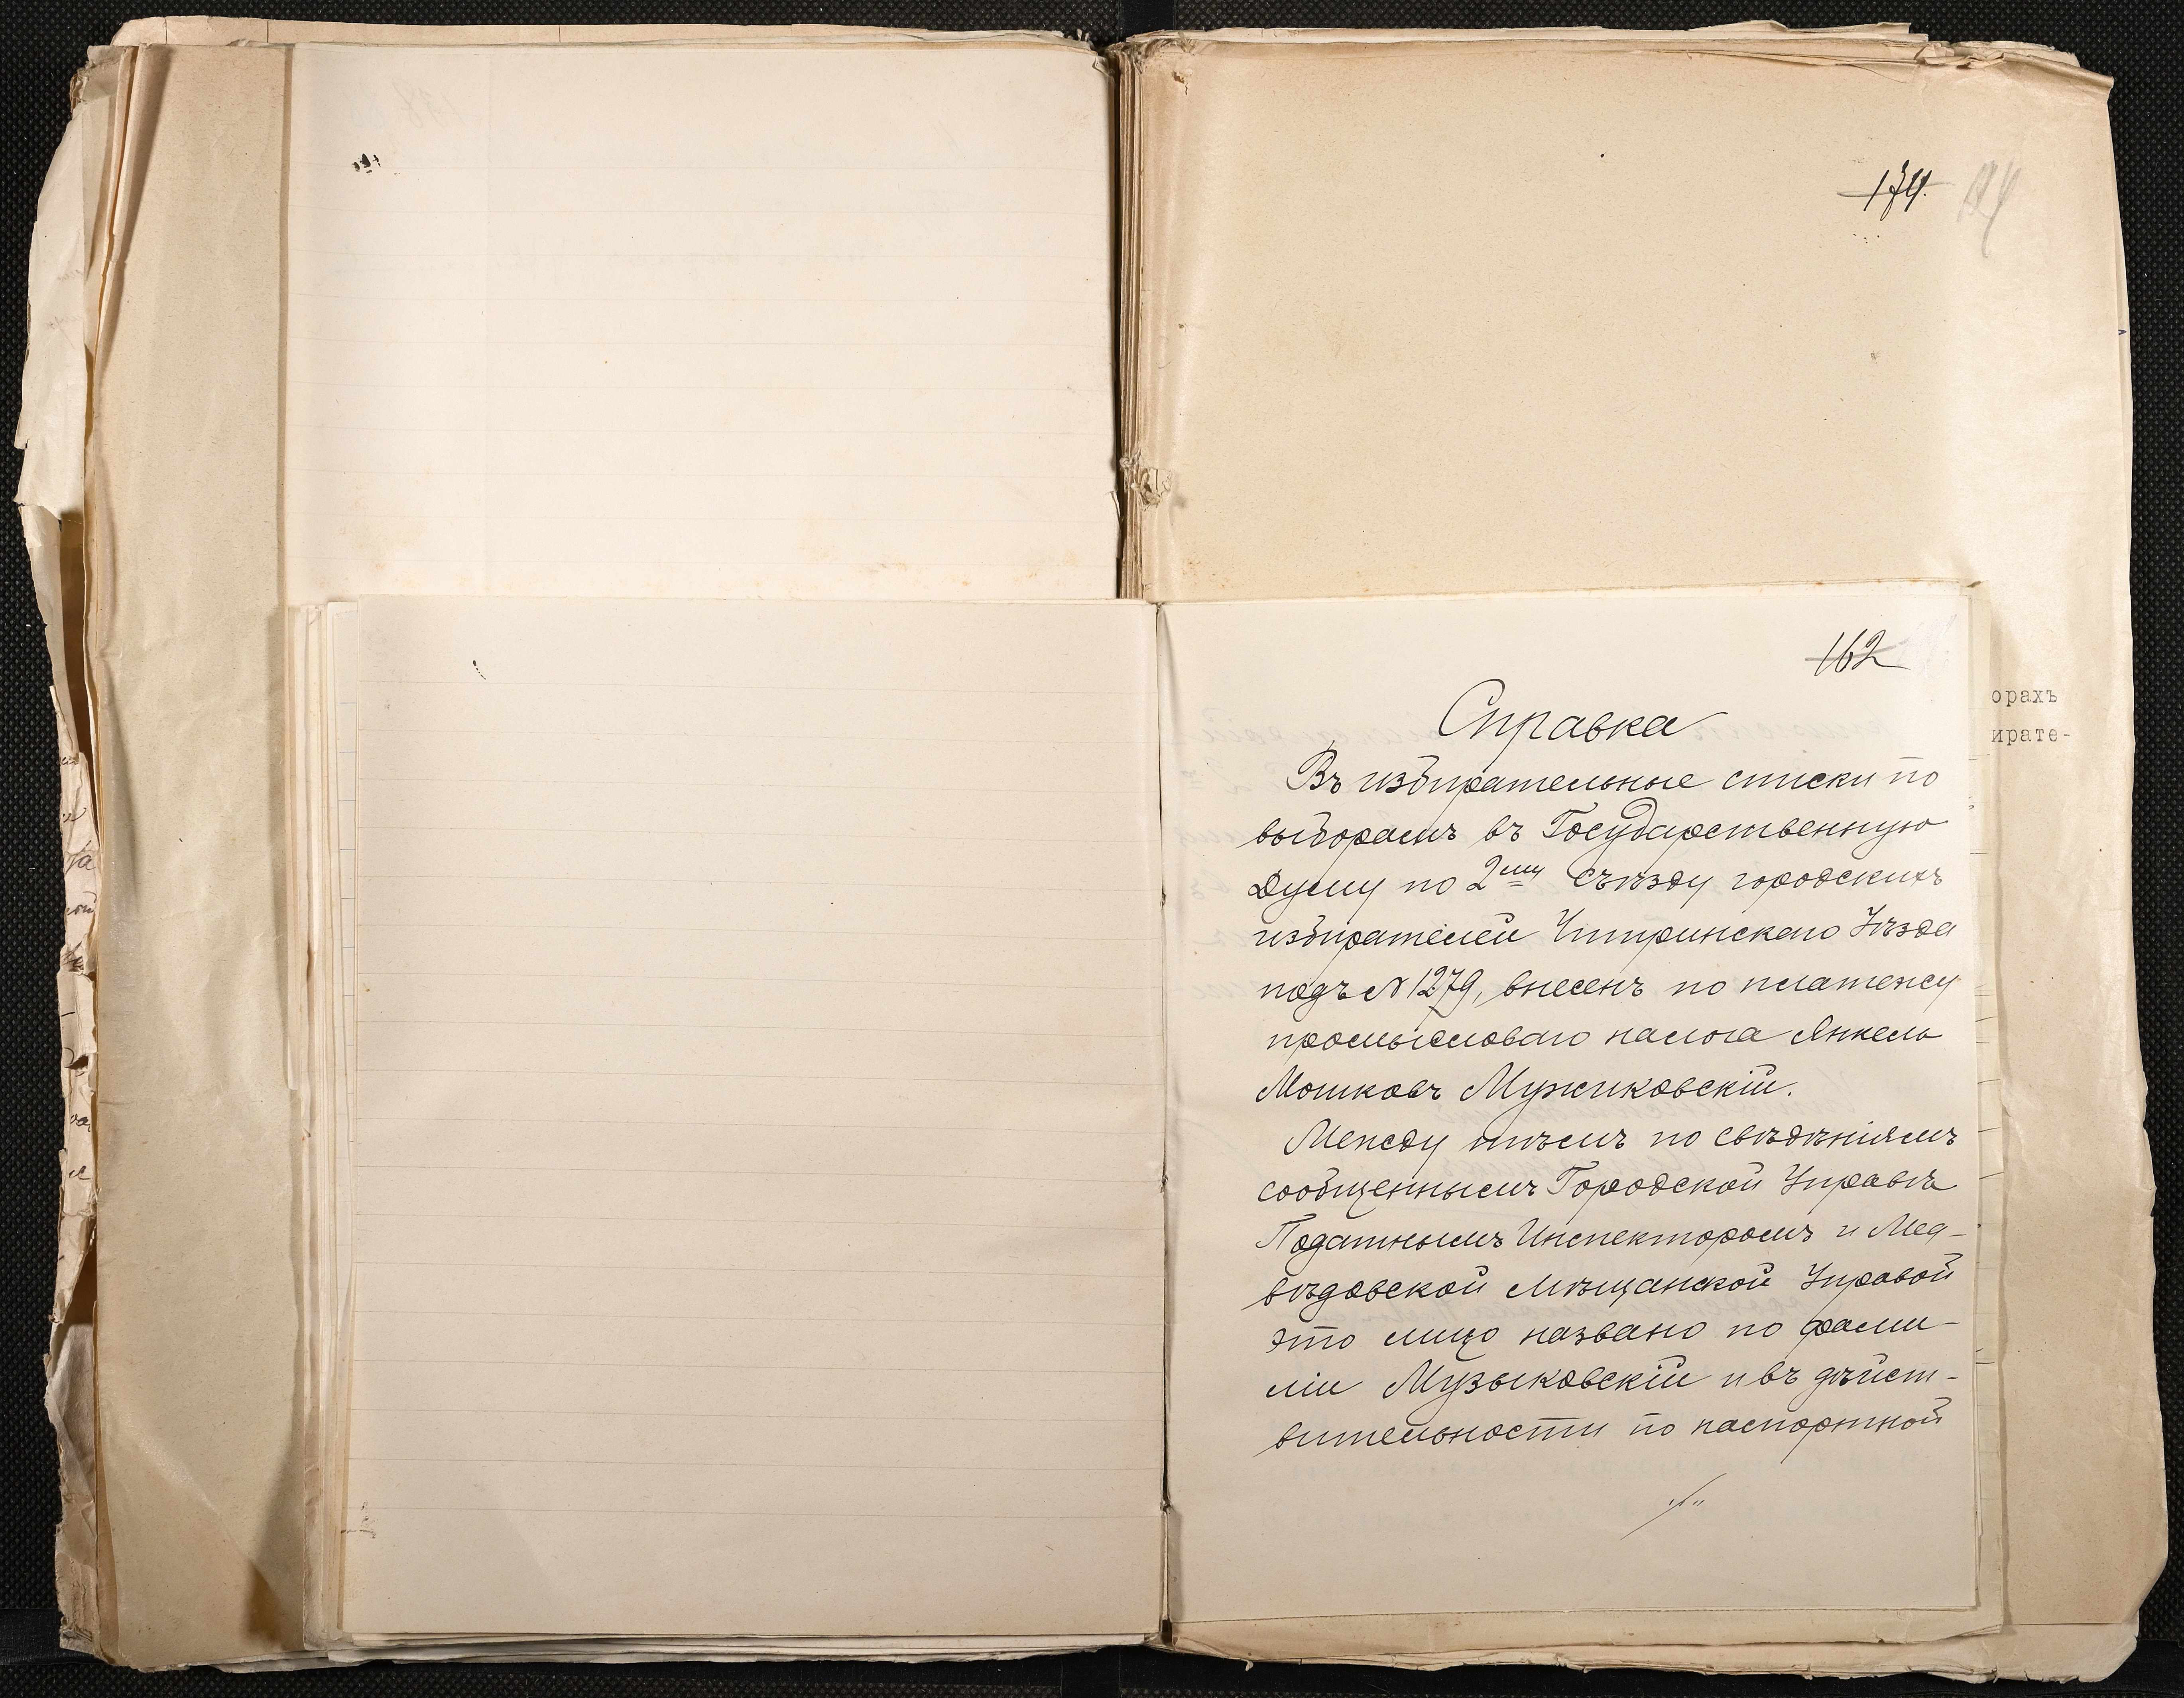 174.
162
орахъ
ирате-
Справка
Въ избирательные списки по
выборамъ въ Государственную
Думу по 2му съѣзду городскихъ
избирателей Чигиринскаго Уѣзда
подъ № 1279, внесенъ по платежу
промысловаго налога Янкель
Мошковъ Мужиковскій.
Между тѣмъ по свѣдѣніямъ
сообщеннымъ Городской Управѣ
Податнымъ Инспекторомъ и Мед-
вѣдовской Мѣщанской Управой
это лицо названо по фами-
ліи Музыковскій и въ дѣйст-
вительности по паспортной